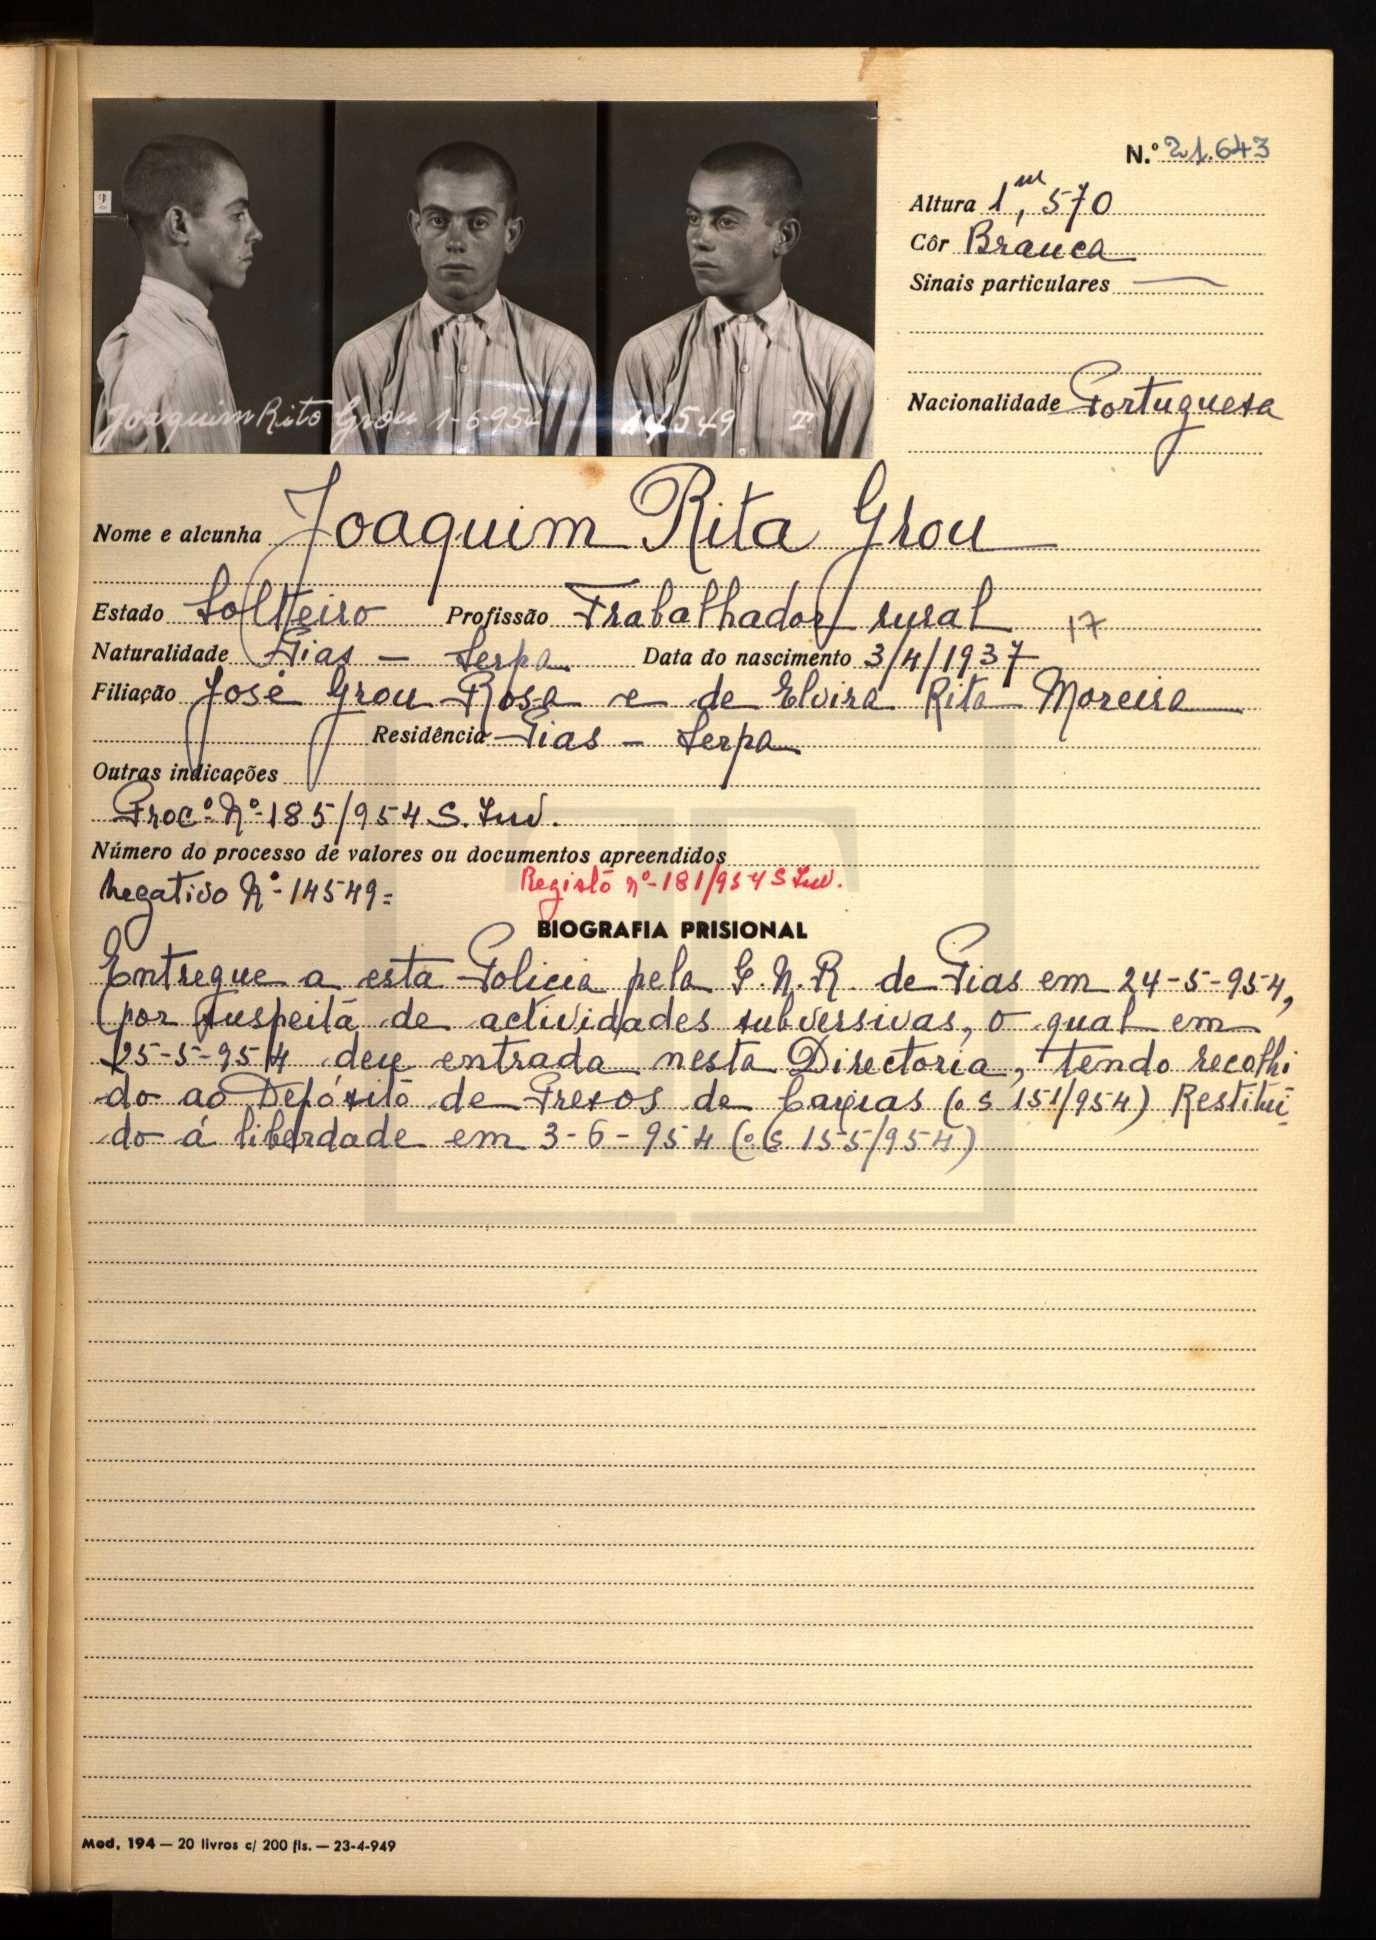 N.º 21.643
Altura 1m,570
Côr Branca
Sinais particulares
Nacionalidade Portuguesa
Joaquim Rito Grou 1-6-954 14549
Nome e alcunha Joaquim Rita Grou
Estado Solteiro Profissão Trabalhador rural
17
Naturalidade Pias - Serpa Data do nascimento 3/4/1937
Filiação José Grou Rosa e de Elvira Rita Moreira
Residência Pias - Serpa
Outras indicações
Procº. Nº. 185/954 S. Inv.
Número do processo de valores ou documentos apreendidos
Negativo Nº. 14549= Registo nº. 181/954 S Inv.
BIOGRAFIA PRISIONAL
Entregue a esta Policia pela G.N.R. de Pias em 24-5-954,
por suspeita de actividades subversivas, o qual em
25-5-954 deu entrada nesta Directoria, tendo recolhi
do ao Depósito de Presos de Caxias (o s 151/954) Restitui-
do á liberdade em 3-6-954 (o.s 155/954)
Mod. 194 — 20 livros c/ 200 fls. — 23-4-949